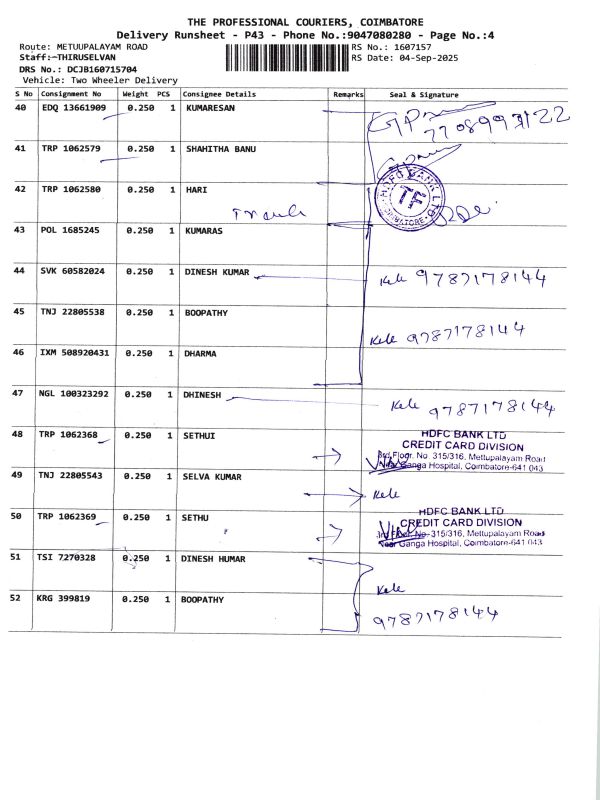 THE PROFESSIONAL COURIERS, COIMBATORE
Delivery Runsheet - P43 - Phone No.:9047080280 - Page No.:4
Route: METUUPALAYAM ROAD RS No.: 1607157
Staff:-THIRUSELVAN RS Date: 04-Sep-2025
DRS No.: DCJB160715704
Vehicle: Two Wheeler Delivery
S No Consignment No Weight PCS Consignee Details Remarks Seal & Signature
40 EDQ 13661909 0.250 1 KUMARESAN
7708997122
41 TRP 1062579 0.250 1 SHAHITHA BANU
42 TRP 1062580 0.250 1 HARI
HDFC BANK LTD
TF
COIMBATORE
43 POL 1685245 0.250 1 KUMARAS
44 SVK 60582024 0.250 1 DINESH KUMAR
9787178144
45 TNJ 22805538 0.250 1 BOOPATHY
9787178144
46 IXM 508920431 0.250 1 DHARMA
47 NGL 100323292 0.250 1 DHINESH
9787178144
48 TRP 1062368 0.250 1 SETHUI
HDFC BANK LTD
CREDIT CARD DIVISION
3rd Floor, No. 315/316, Mettupalayam Road
Near Ganga Hospital, Coimbatore-641 043
49 TNJ 22805543 0.250 1 SELVA KUMAR
50 TRP 1062369 0.250 1 SETHU
HDFC BANK LTD
CREDIT CARD DIVISION
3rd Floor, No. 315/316, Mettupalayam Road
Near Ganga Hospital, Coimbatore-641 043
51 TSI 7270328 0.250 1 DINESH HUMAR
52 KRG 399819 0.250 1 BOOPATHY
9787178144